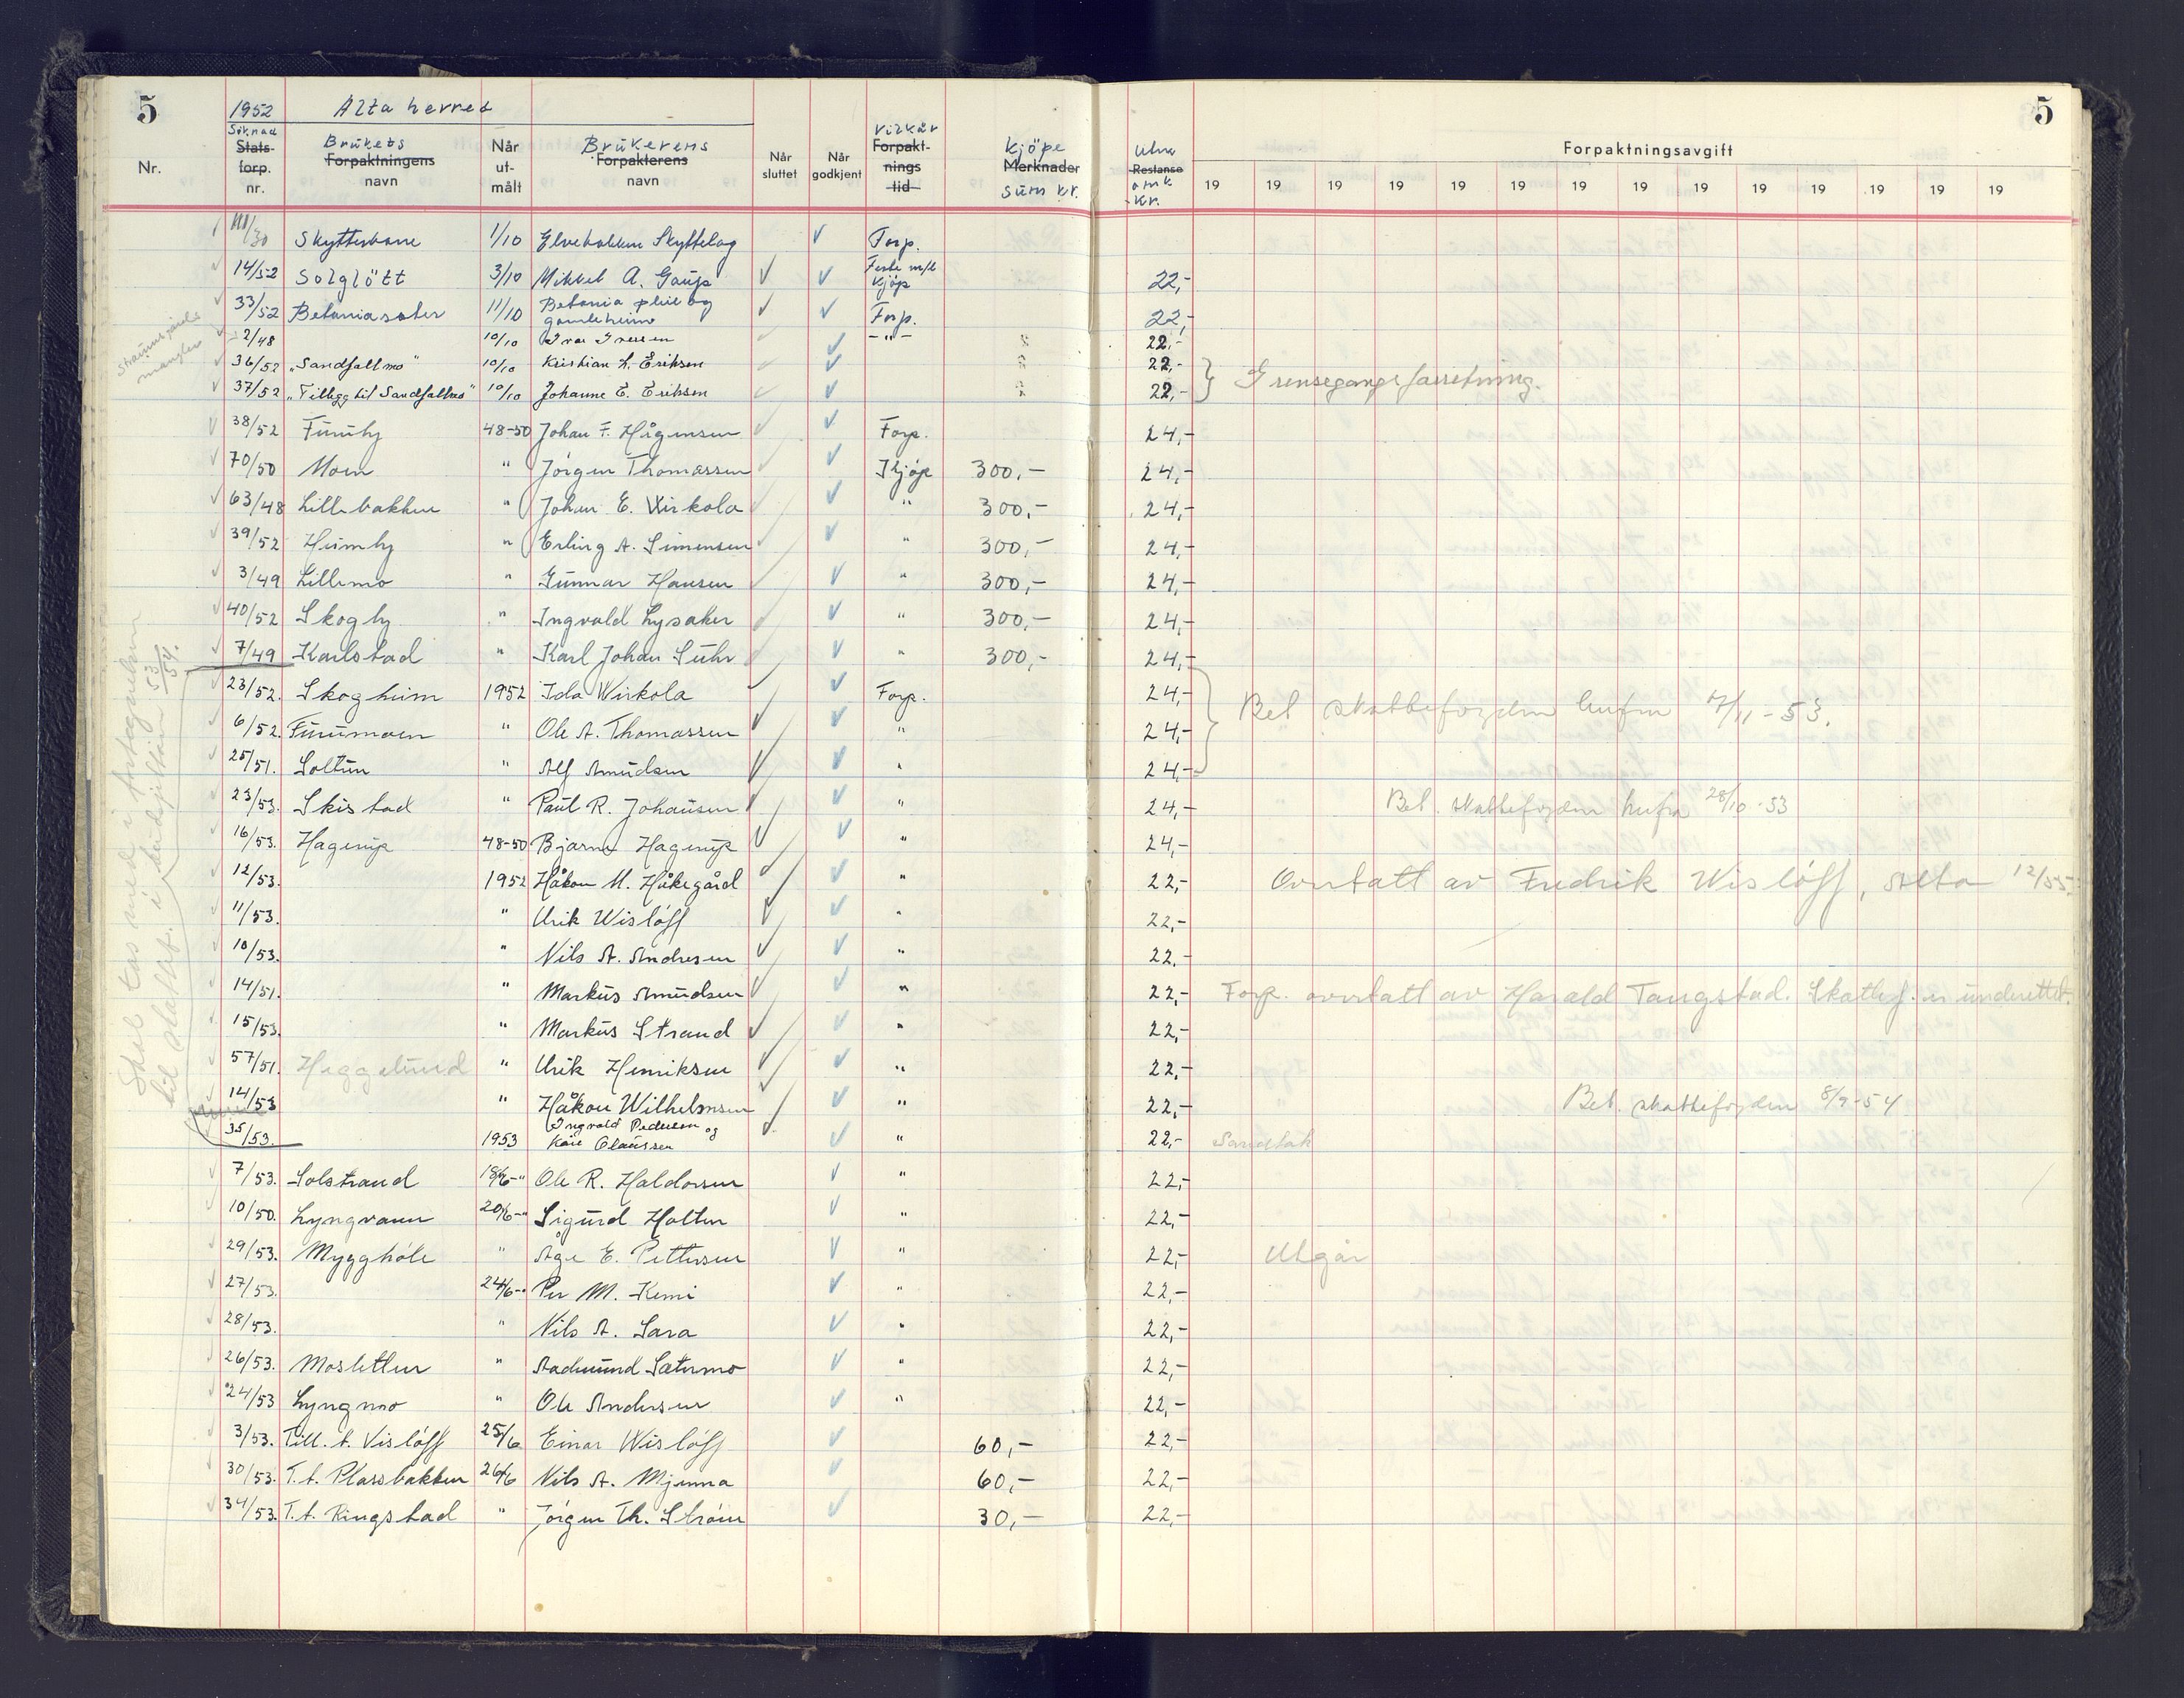 5 1952 Alta herred 5
Söknad Brukets Brukerens Vilkår Kjöpe Utm
Nr. Stats-forp. nr. Forpaktningens navn Når ut-målt Forpakterens navn Når sluttet Når godkjent Forpakt-nings tid Merknader sum kr. Restanse omk kr. Forpaktningsavgift
19 19 19 19 19 19 19 19 19 19 19 19 19 19
/30 Skytterbane 1/10 Elvebakken Skyttelag Forp.
14/52 Solglött 3/10 Mikkel A. Gaup Feste m/k Kjöp 22,-
33/52 Betaniasæter 11/10 Betania pleie og gamleheim Forp. 22,-
2/48 10/10 Ivar Iversen -"- 22,-
36/52 "Sandfallmo" 10/10 Kristian L. Eriksen 22,-
Grensegangsforretning.
37/52 "Tillegg til Sandfallmo" 10/10 Johanne E. Eriksen 22,-
38/52 Furuly 48-50 Johan F. Hågensen Forp. 24,-
70/50 Moen " Jörgen Thomassen Kjöp 300,- 24,-
63/48 Lillebakken " Johan E. Wirkola " 300,- 24,-
39/52 Heimly " Erling A. Simensen " 300,- 24,-
3/49 Lillemo " Gunnar Hansen " 300,- 24,-
40/52 Skogly " Ingvald Lysaker " 300,- 24,-
7/49 Karlstad " Karl Johan Suhr " 300,- 24,-
23/52. Skogheim 1952 Ida Wirkola Forp. 24,-
Bet skattefogden herfra 7/11-53.
6/52. Furumoen " Ole A. Thomassen " 24,-
25/51. Soltun " Alf Amundsen " 24,-
23/53. Skistad " Paul R. Johansen " 24,- Bet. skattefogden herfra 28/10-53
16/53. Hagerup 48-50 Bjarne Hagerup " 24,-
12/53. 1952 Håkon M. Håkegård " 22,- Overtatt av Fredrik Wislöff, Alta 12/55.
11/53. " Ulrik Wislöff " 22,-
10/53. " Nils A. Andresen " 22.-
14/51. " Markus Amundsen " 22,- Forp. overtatt av Harald Tangstad. Skattef. er underettet.
15/53. " Markus Strand " 22,-
57/51. Heggelund " Ulrik Henriksen " 22,-
14/53 " Håkon Wilhelmsen " 22,- Bet. skattefogden 8/9-54
35/53. 1953 Ingvald Pedersen og Kåre Claussen " 22,- Sandtak
7/53. Solstrand 18/6-" Ole R. Haldorsen " 22,-
10/50. Lyngvann 20/6-" Sigurd Holten " 22,-
29/53. Mygghöle " Åge E. Pettersen " 22,- Utgår
27/53. 24/6-" Per M. Kemi " 22,-
28/53. " Nils A. Sara " 22,-
26/53. Mosletten " Aadmund Sætermo " 22,-
24/53 Lyngmo " Ole Andersen " 22,-
3/53. Till. t. Vislöff 25/6 Einar Wislöff 60,- 22,-
30/53. T.t. Plassbakken 26/6 Nils A. Mjenna 60,- 22,-
34/53. T.t. Ringstad " Jörgen Th. Ström 30,- 22,-
mangler
Skal tas med i
til skattef. i 53/54.